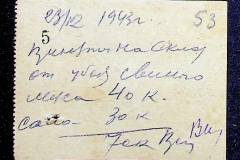 23/12 1943г. 53
5
на склад
от убоя свиного
мяса 40 к.
сало 30 к